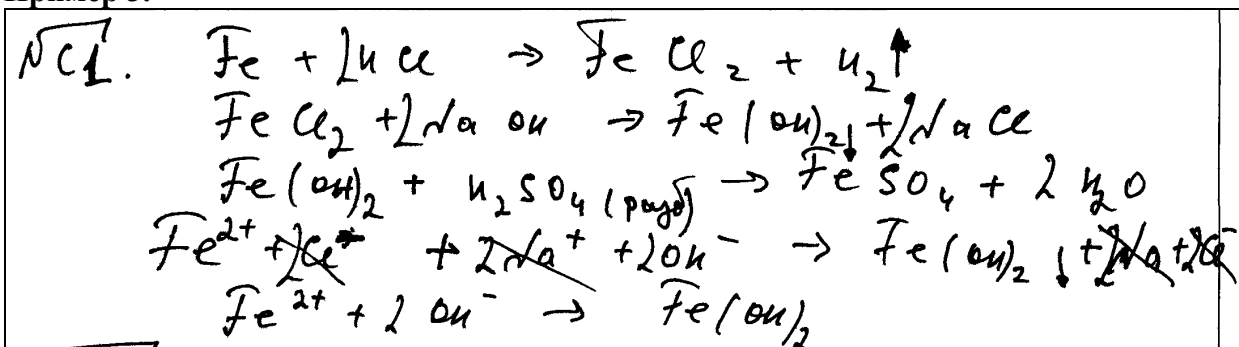 Пример 3.
№C1. Fe + 2HCl → FeCl₂ + H₂↑
FeCl₂ + 2NaOH → Fe(OH)₂↓ + 2NaCl
Fe(OH)₂ + H₂SO₄ (разб) → FeSO₄ + 2H₂O
Fe²⁺ + 2Cl⁻ + 2Na⁺ + 2OH⁻ → Fe(OH)₂↓ + 2Na + 2Cl⁻
Fe²⁺ + 2OH⁻ → Fe(OH)₂